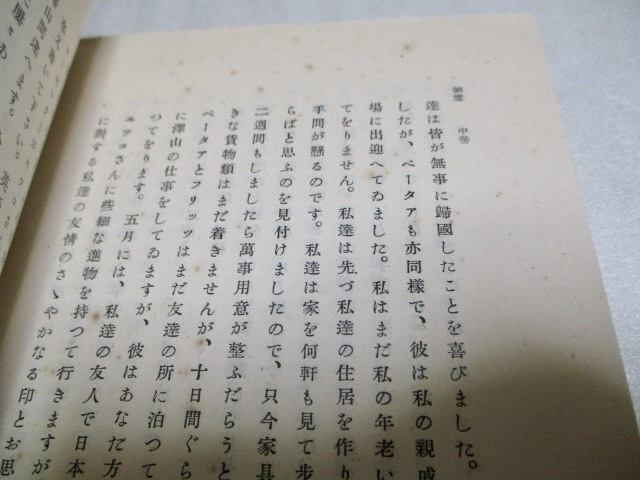 細雪　中巻
達は皆が無事に歸國したことを喜びました。
したが、ペータアも亦同樣で、彼は私の親戚
場に出迎へてゐました。私はまだ私の年老い
てをりません。私達は先づ私達の住居を作り
手間が懸るのです。私達は家を何軒も見て步
らばと思ふのを見付けましたので、只今家具
二週間もしましたら萬事用意が整ふだらうと
きな貨物類はまだ着きませんが、十日間ぐら
ペータアとフリッツはまだ友達の所に泊つて
に澤山の仕事をしてゐますが、彼はあなた方
つてをります。五月には、私達の友人で日本
エツコさんに些細な進物を持つて行きますが
に對する私達の友情のさゝやかなる印とお思